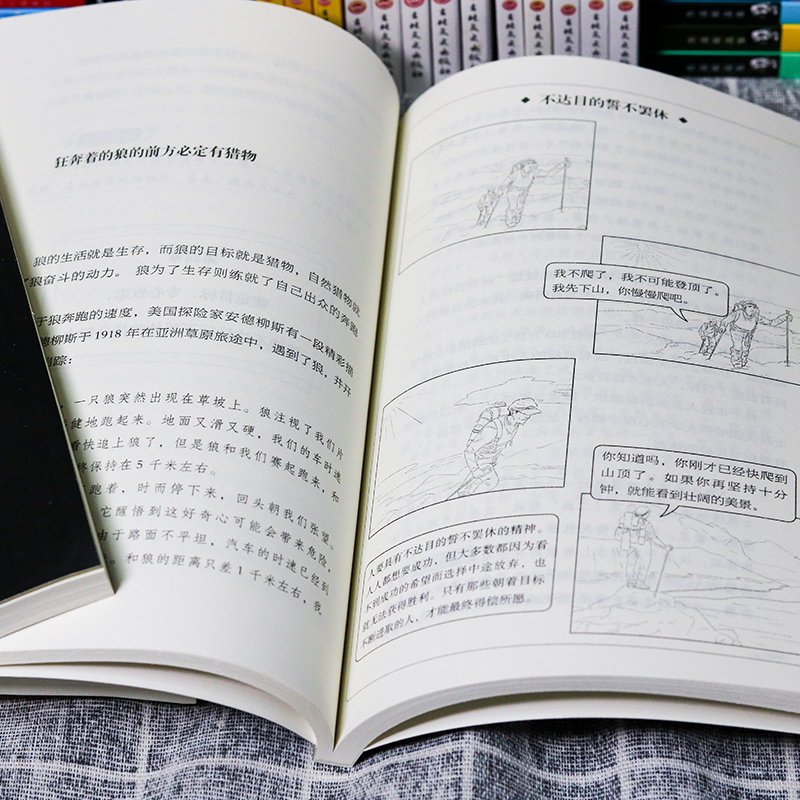 狂奔着的狼的前方必定有猎物
狼的生活就是生存，而狼的目标就是猎物，自然猎物就
了狼奋斗的动力。 狼为了生存则练就了自己出众的奔跑
于狼奔跑的速度，美国探险家安德柳斯有一段精彩描
德柳斯于 1918 年在亚洲草原旅途中，遇到了狼，并开
踪：
，一只狼突然出现在草坡上。狼注视了我们片
健地跑起来。地面又滑又硬，我们的车时速
看快追上狼了，但是狼和我们赛起跑来，和
终保持在 5 千米左右。
跑着，时而停下来，回头朝我们张望。
它醒悟到这好奇心可能会带来危险，
由于路面不平坦，汽车的时速已经到
。和狼的距离只差 1 千米左右，我
不达目的誓不罢休
我不爬了，我不可能登顶了。
我先下山，你慢慢爬吧。
你知道吗，你刚才已经快爬到
山顶了。如果你再坚持十分
钟，就能看到壮阔的美景。
人要具有不达目的誓不罢休的精神。
人人都想要成功，但大多数都因为看
不到成功的希望而选择中途放弃，也
就无法获得胜利。只有那些朝着目标
不断进取的人，才能最终得偿所愿。